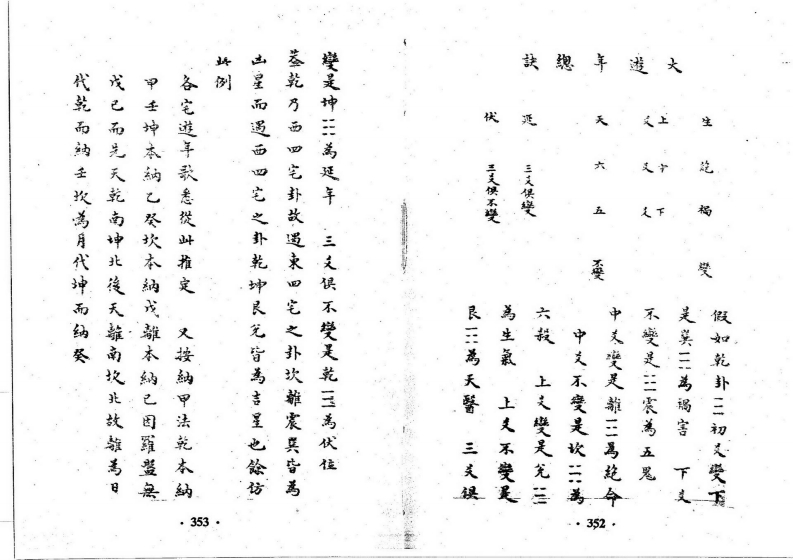 大遊年總訣
生絕禍變
上中下
爻爻爻
天六五不變
延 三爻俱變
伏 三爻俱不變
假如乾卦☰初爻變下
是巽☴為禍害 下爻
不變是☳震為五鬼
中爻變是離☲為絕命
中爻不變是坎☵為
六殺 上爻變是兌☱
為生氣 上爻不變是
艮☶為天醫 三爻俱
·352·
變是坤☷為延年 三爻俱不變是乾☰為伏位
蓋乾乃西四宅卦故遇東四宅之卦坎離震巽皆為
凶星而遇西四宅之卦乾坤艮兌皆為吉星也餘仿
此例
各宅遊年歌悉從此推定 又按納甲法乾本納
甲壬坤本納乙癸坎本納戊離本納己因羅盤無
戊己而先天乾南坤北後天離南坎北故離為日
代乾而納壬坎為月代坤而納癸
·353·